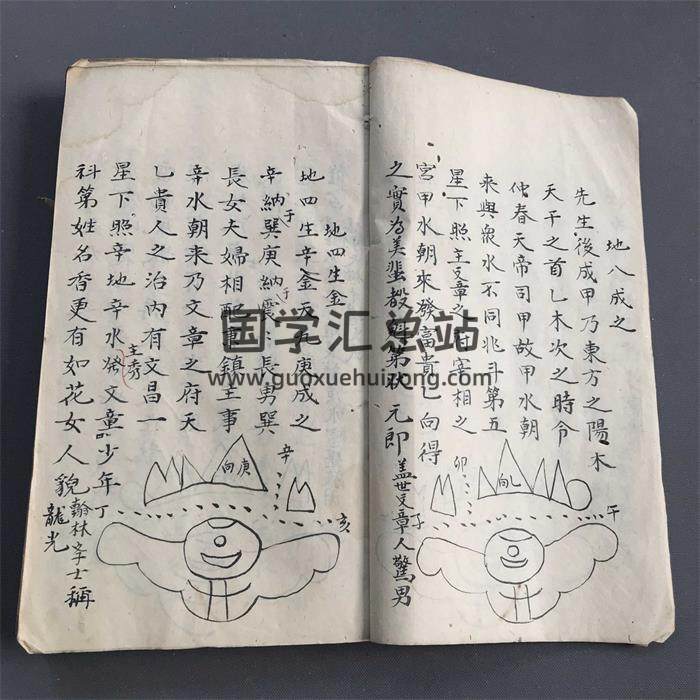 地八成之
先生後成甲乃東方之陽木
天干之首乙木次之時令
仲春天帝司甲故甲水朝
來與眾水不同兆斗第五
星下照主文章之府宰相之
宮甲水朝來發富貴乙向得
之實為美蜚
元郎
蓋世文章人驚男
卯
向乙
午
子
地四生金
地四生辛金
庚成之
辛納巽庚納震
長男巽
于
于
長女夫婦相配
鎮主事
辛水朝來乃文章之府天
乙貴人之治內有文昌一
星下照辛地辛水發文章
少年
主秀
科第姓名香更有如花女人貌
翰林學士稱
龍光
辛
向庚
亥
丁
国学汇总站
www.guoxuehuizong.com